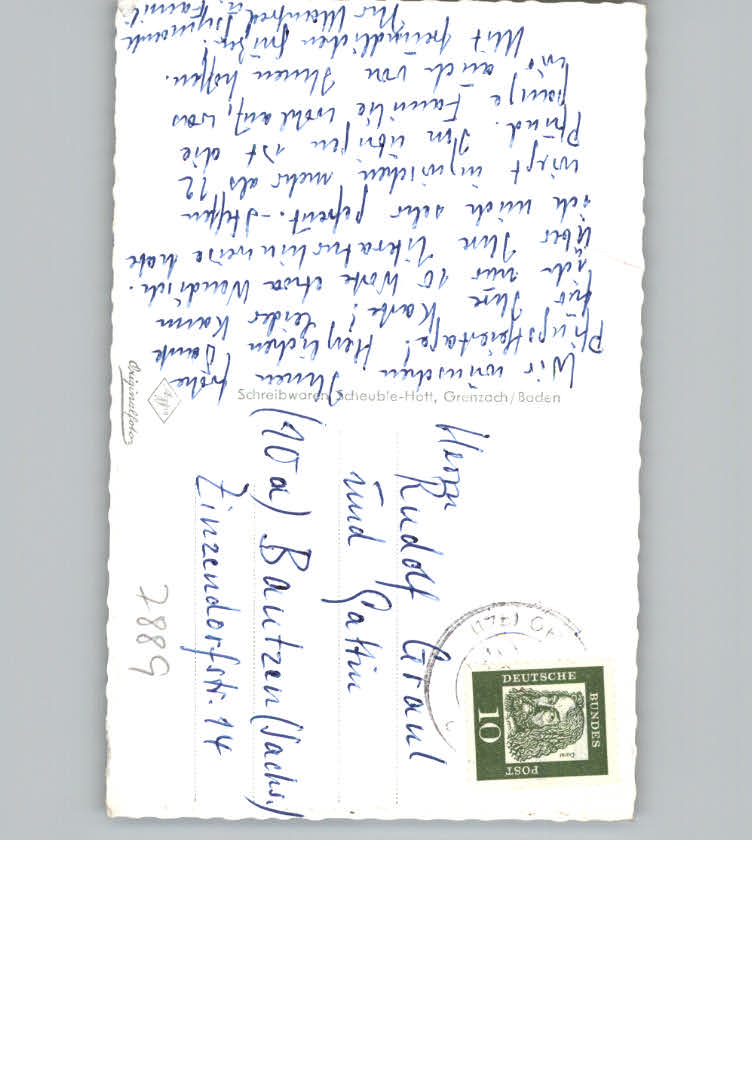 Wir wünschen Ihnen frohe
Pfingstfeiertage! Herzlichen Dank
für Ihre Karte! Leider kann
ich nur 10 Worte etwa Wendisch.
Über Ihre Literaturhinweise habe
ich mich sehr gefreut. - Steffen
wiegt inzwischen mehr als 12
Pfund. Im übrigen ist die
ganze Familie wohlauf, was
wir auch von Ihnen hoffen.
Mit freundlichen Grüßen
Ihr Manfred u. Familie
Schreibwaren Scheuble-Hott, Grenzach/Baden
Originalfoto
Agfa
Herrn
Rudolf Graul
und Gattin
(10a) Bautzen (Sachs.)
Zinzendorfstr. 14
7889
(17b)
DEUTSCHE
BUNDES
POST
10
Dürer